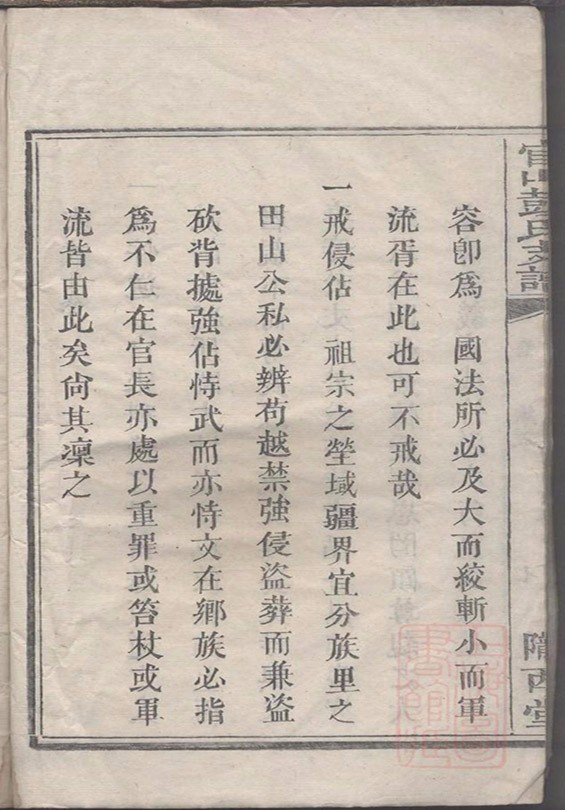 官山彭氏支譜
隴西堂
容卽爲 國法所必及大而絞斬小而軍
流胥在此也可不戒哉
一戒侵佔 祖宗之塋域疆界宜分族里之
田山公私必辨苟越禁強侵盜葬而兼盜
砍背據強佔恃武而亦恃文在鄉族必指
爲不仁在官長亦處以重罪或笞杖或軍
流皆由此矣尙其凜之